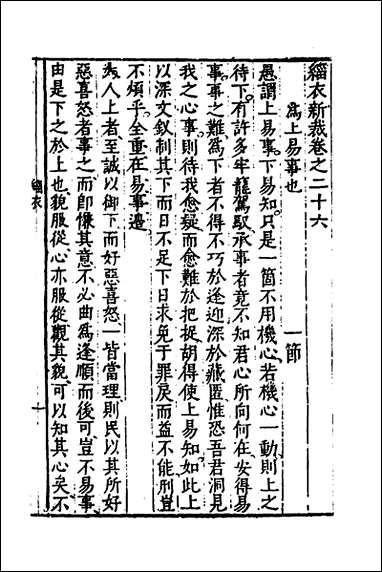 緇衣新裁卷之二十六
為上易事也　一節
愚謂上易事下易知只是一箇不用機心若機心一動則上之
待下有許多牢籠駕馭承事者竟不知君心所向何在安得易
事事之難為下者不得不巧於逢迎深於藏匿惟恐吾君洞見
我之心事則待我愈疑而愈難於把捉胡得使上易知如此上
以深文欽制其下而日不足下日求免于罪戾而益不能刑豈
不煩乎全重在易事邊
為人上者至誠以御下而好惡喜怒一皆當理則民以其所好
惡喜怒者事之而即像其意不必曲為逢順而後可豈不易事
由是下之於上也貌服從心亦服從觀其貌可以知其心矣不
緇衣
一